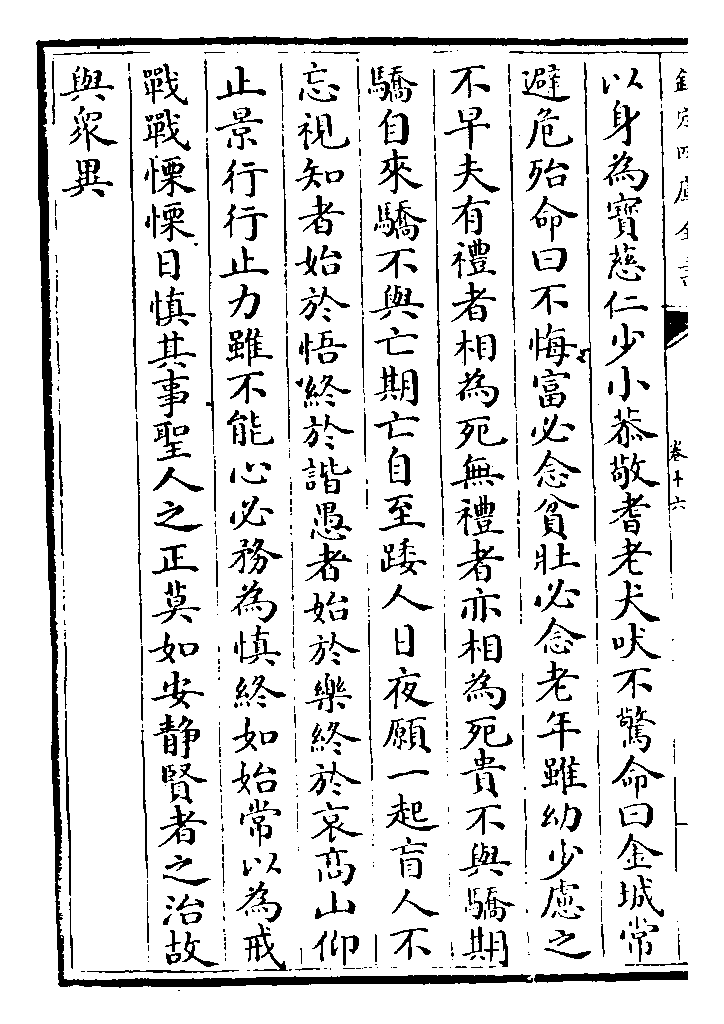 欽定四庫全書
卷十六
以身為寳慈仁少小恭敬耆老犬吠不驚命曰金城常
避危殆命曰不悔富必念貧壯必念老年雖幼少慮之
不早夫有禮者相為死無禮者亦相為死貴不與驕期
驕自來驕不與亡期亡自至踒人日夜願一起盲人不
忘視知者始於悟終於諧愚者始於樂終於哀高山仰
止景行行止力雖不能心必務為慎終如始常以為戒
戰戰慄慄日慎其事聖人之正莫如安静賢者之治故
與衆異